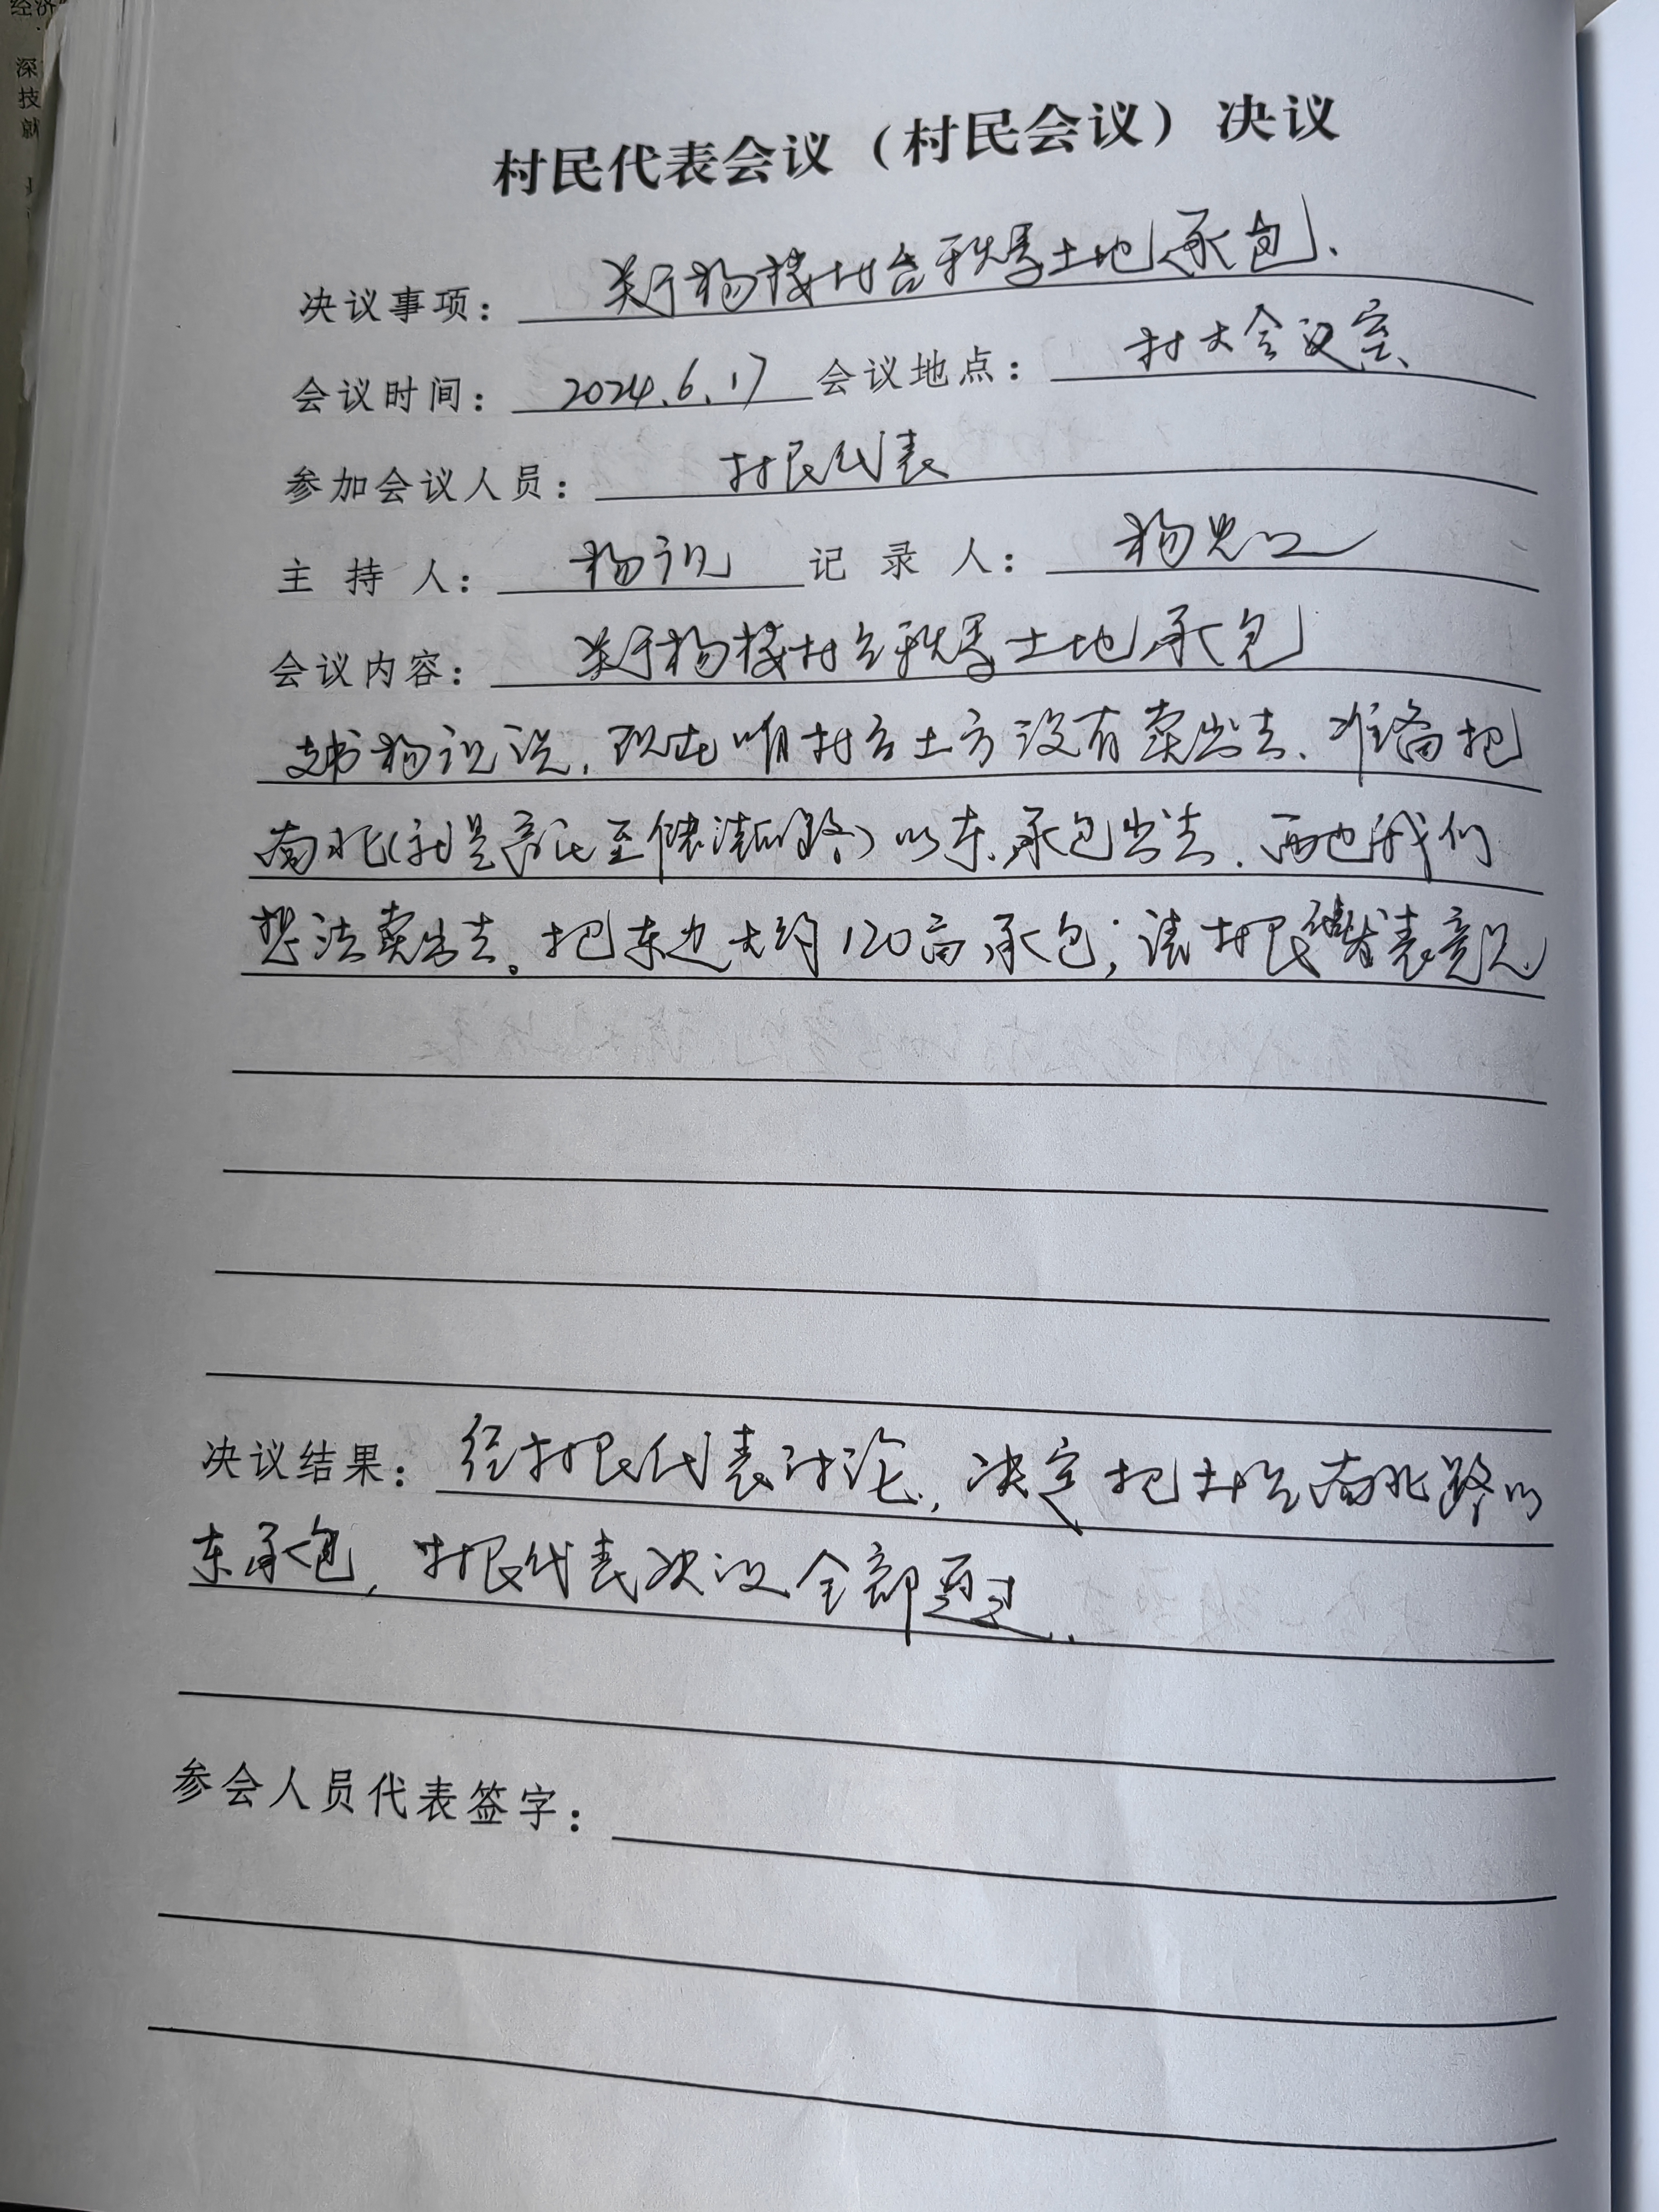 经济
深
技
就
村民代表会议（村民会议）决议
决议事项：关于杨楼村台秩序土地承包.
会议时间：2024.6.17 会议地点：村大会议室、
参加会议人员：村民代表
主持人：杨 记录人：杨
会议内容：关于杨楼村台秩序土地承包
支书杨说，现在咱村台土方没有卖出去、准备把
南北(就是至路)以东、承包出去.西边我们
想法卖出去。把东边大约120亩承包；请村民代表发表意见
决议结果：经村民代表讨论，决定把村台南北路以
东承包，村民代表决议全部通过.
参会人员代表签字：